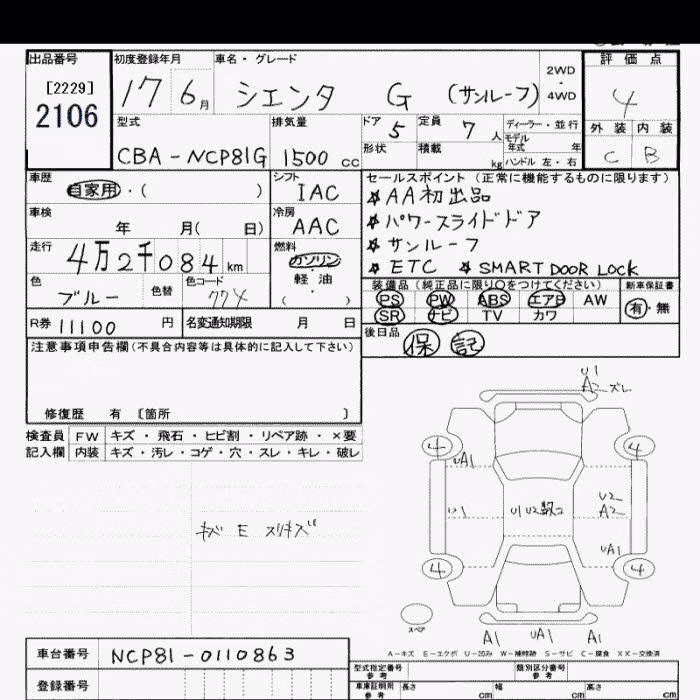 出品番号 初度登録年月 車名・グレード 2WD・4WD 評価点
[2229]
2106
17 6月 シエンタ G (サンルーフ) 4
型式 排気量 ドア 5 定員 7人 ディーラー・並行 外装 内装
モデル年式 年
CBA-NCP81G 1500cc 形状 積載 kg ハンドル 左・右 C B
車歴 自家用・( ) シフト IAC セールスポイント (正常に機能するものに限ります)
☆AA初出品
車検 年 月( 日) 冷房 AAC ☆パワースライドドア
☆サンルーフ
走行 4万2千084km 燃料 ガソリン・軽油・( ) ☆ETC ☆SMART DOOR LOCK
色 ブルー 色替 色コード 774 装備品 (純正品に限り○をつけてください) 新車保証書
PS PW ABS エアB AW 有・無
SR ナビ TV カワ
R券 11100円 名変通知期限 月 日 後日品 保 記
注意事項申告欄(不具合内容等は具体的に記入して下さい)
修復歴 有 〔箇所 〕
検査員 FW キズ・飛石・ヒビ割・リペア跡・×要
記入欄 内装 キズ・汚レ・コゲ・穴・スレ・キレ・破レ
U1
A2 ズレ
4 4
UA1
U1 U1 U2 数コ U2
A2
キズ E スリキズ
UA1
4 4
スペア
A1 UA1 A1
A-キズ E-エクボ U-凹み W-補修跡 S-サビ C-腐食 XX-交換済
車台番号 NCP81-0110863
型式指定番号 参考 類別区分番号 参考
登録番号
車庫証明用 参考 長さ cm 幅 cm 高さ cm